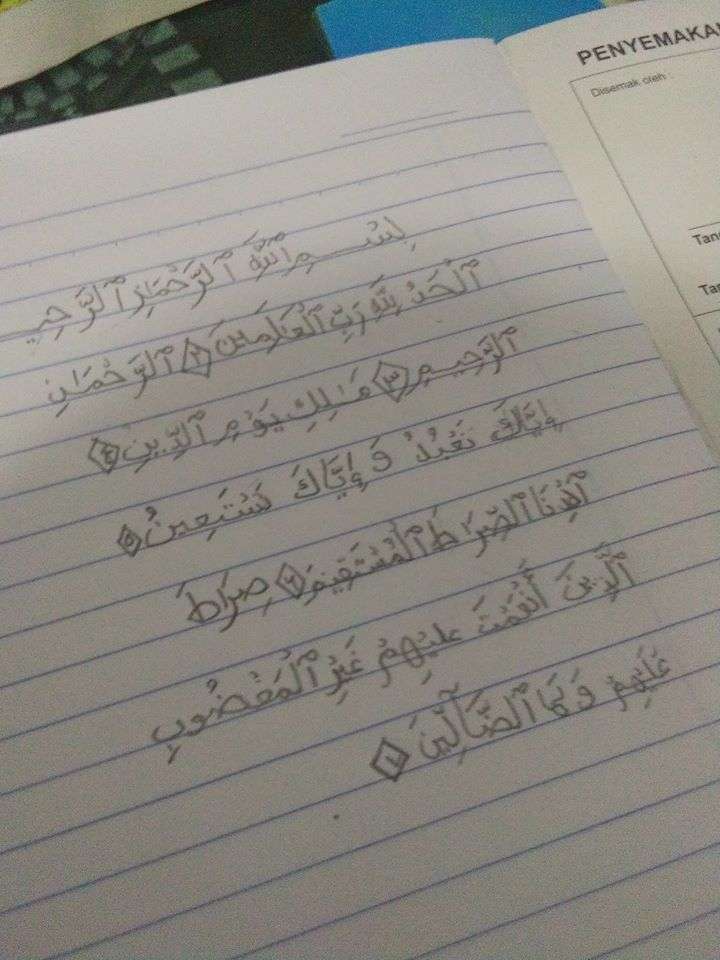 PENYEMAKAN
Disemak oleh :
بِسْمِ ٱللَّهِ ٱلرَّحْمَٰنِ ٱلرَّحِي
ٱلْحَمْدُ لِلَّهِ رَبِّ ٱلْعَٰلَمِينَ ﴿٢﴾ ٱلرَّحْمَٰنِ
ٱلرَّحِيمِ ﴿٣﴾ مَٰلِكِ يَوْمِ ٱلدِّينِ ﴿٤﴾
إِيَّاكَ نَعْبُدُ وَإِيَّاكَ نَسْتَعِينُ ﴿٥﴾
ٱهْدِنَا ٱلصِّرَاطَ ٱلْمُسْتَقِيمَ ﴿٦﴾ صِرَاطَ
ٱلَّذِينَ أَنْعَمْتَ عَلَيْهِمْ غَيْرِ ٱلْمَغْضُوبِ
عَلَيْهِمْ وَلَا ٱلضَّآلِّينَ ﴿٧﴾